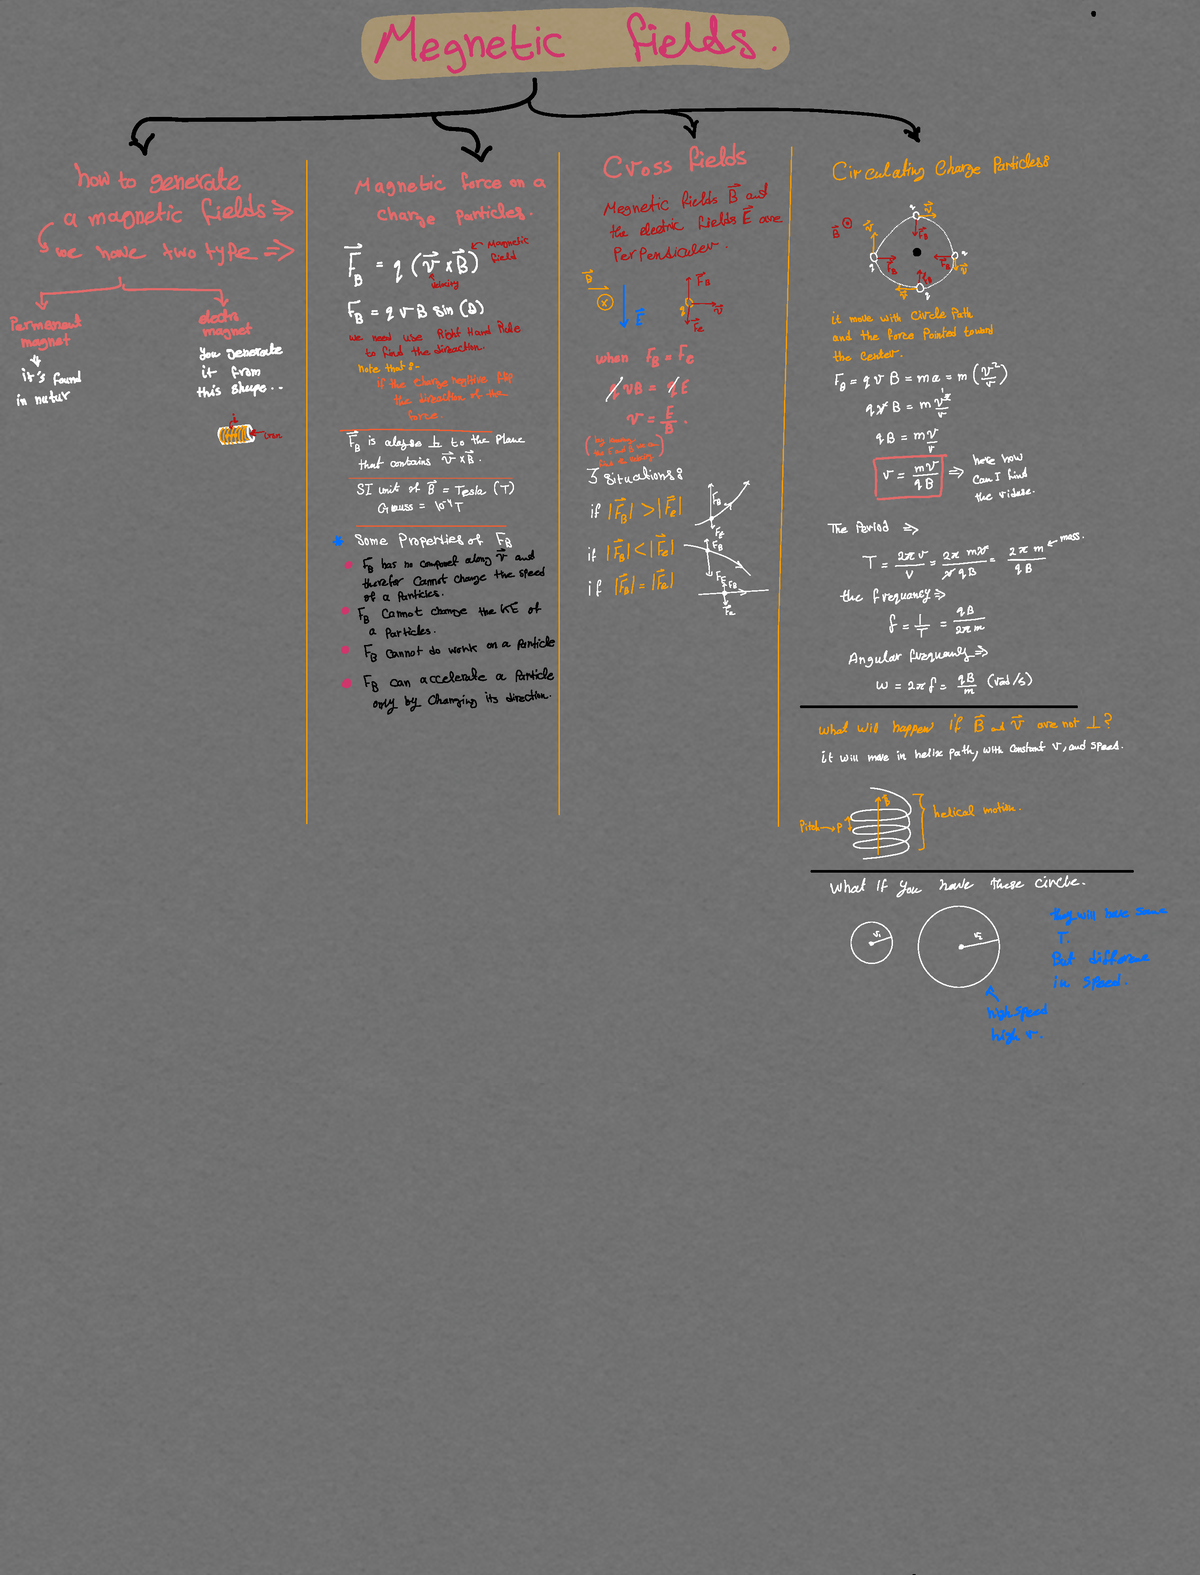 Megnetic fields.
how to generate
a magnetic fields ⇒
we have two type ⇒
Permenant
magnet
it's found
in natur
electro
magnet
you generate
it from
this shape..
i
iron
Magnetic force on a
charge particles.
F⃗_B = q (v⃗ × B⃗)
Magnetic
field
velocity
F_B = q v B sin (Δ)
we need use Right Hand Rule
to find the diraction.
Note that :-
if the charge negitive flip
the direction of the
force.
F⃗_B is alayse ⊥ to the plane
that contains v⃗ × B⃗.
SI unit of B⃗ = Tesla (T)
Gauss = 10⁻⁴ T
* Some Properties of F_B
F_B has no componet along v⃗ and
therefor Cannot change the speed
of a Particles.
F_B Cannot change the KE of
a Particles.
F_B Cannot do work on a Particle
F_B can accelerate a Particle
only by Changing its direction.
Cross fields
Megnetic fields B⃗ and
the electric fields E⃗ are
Perpendiculer.
B⃗
E⃗
F_B
q
v⃗
F_E
when F_B = F_E
q v B = q E
v = E/B
3 situations :
if |F⃗_B| > |F⃗_E|
F_B
F_E
if |F⃗_B| < |F⃗_E|
F_B
F_E
if |F⃗_B| = |F⃗_E|
F_B
F_E
Circulating Charge Particless
B⃗
q
v⃗
F_B
v⃗
q
F_B
F_B
q
v⃗
F_B
v⃗
q
it move with Circle Path
and the force Pointed toward
the center.
F_B = q v B = m a = m (v²/r)
q v B = m v²/r
q B = m v/r
r = mv/qB ⇒ here how
can I find
the ridase.
The Period ⇒
T = 2πr/v = 2π mv/v qB = 2π m/q B
mass.
the frequency ⇒
f = 1/T = qB/2πm
Angular frequency ⇒
ω = 2πf = qB/m (rad/s)
What will happen if B⃗ and v⃗ are not ⊥ ?
it will move in helix path, with constant r, and speed.
B
Pitch → P
helical motion.
What if you have these circle.
r₁
r₂
they will have same
T.
But difference
in speed.
high speed
high r.